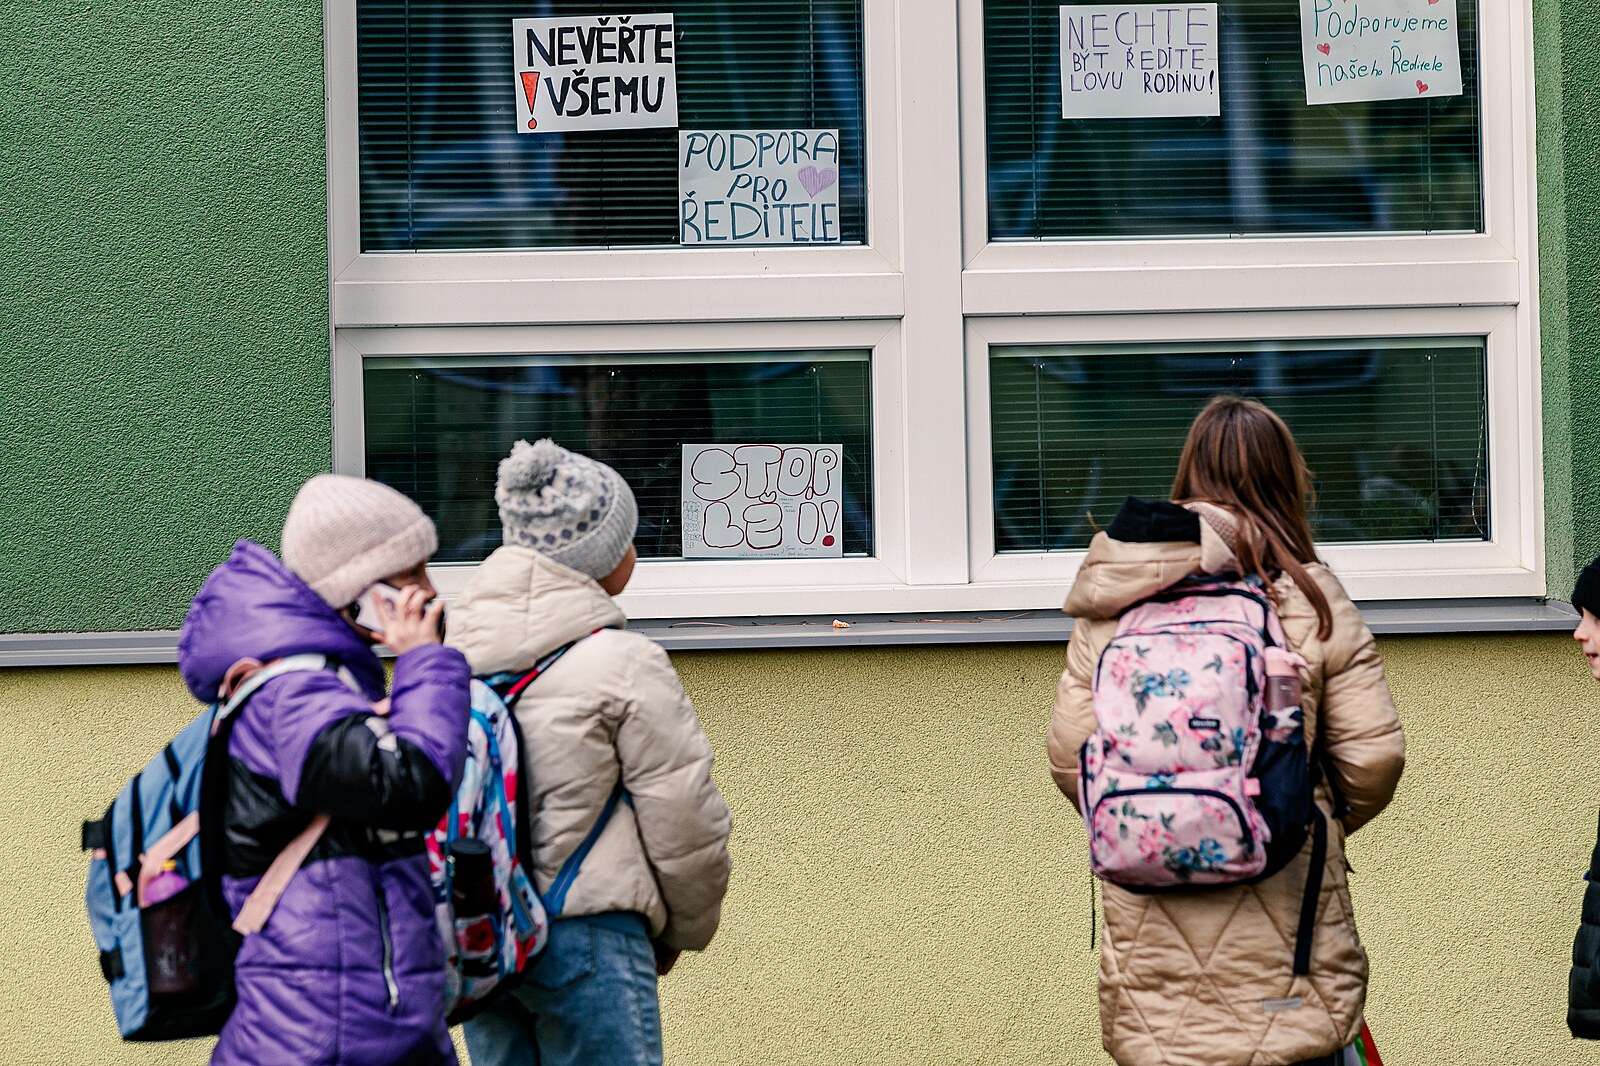 NEVĚŘTE
! VŠEMU
PODPORA
PRO
ŘEDITELE
NECHTE
BÝT ŘEDITE-
LOVU RODINU!
Podporujeme
našeho Ředitele
STOP
LŽÍ!